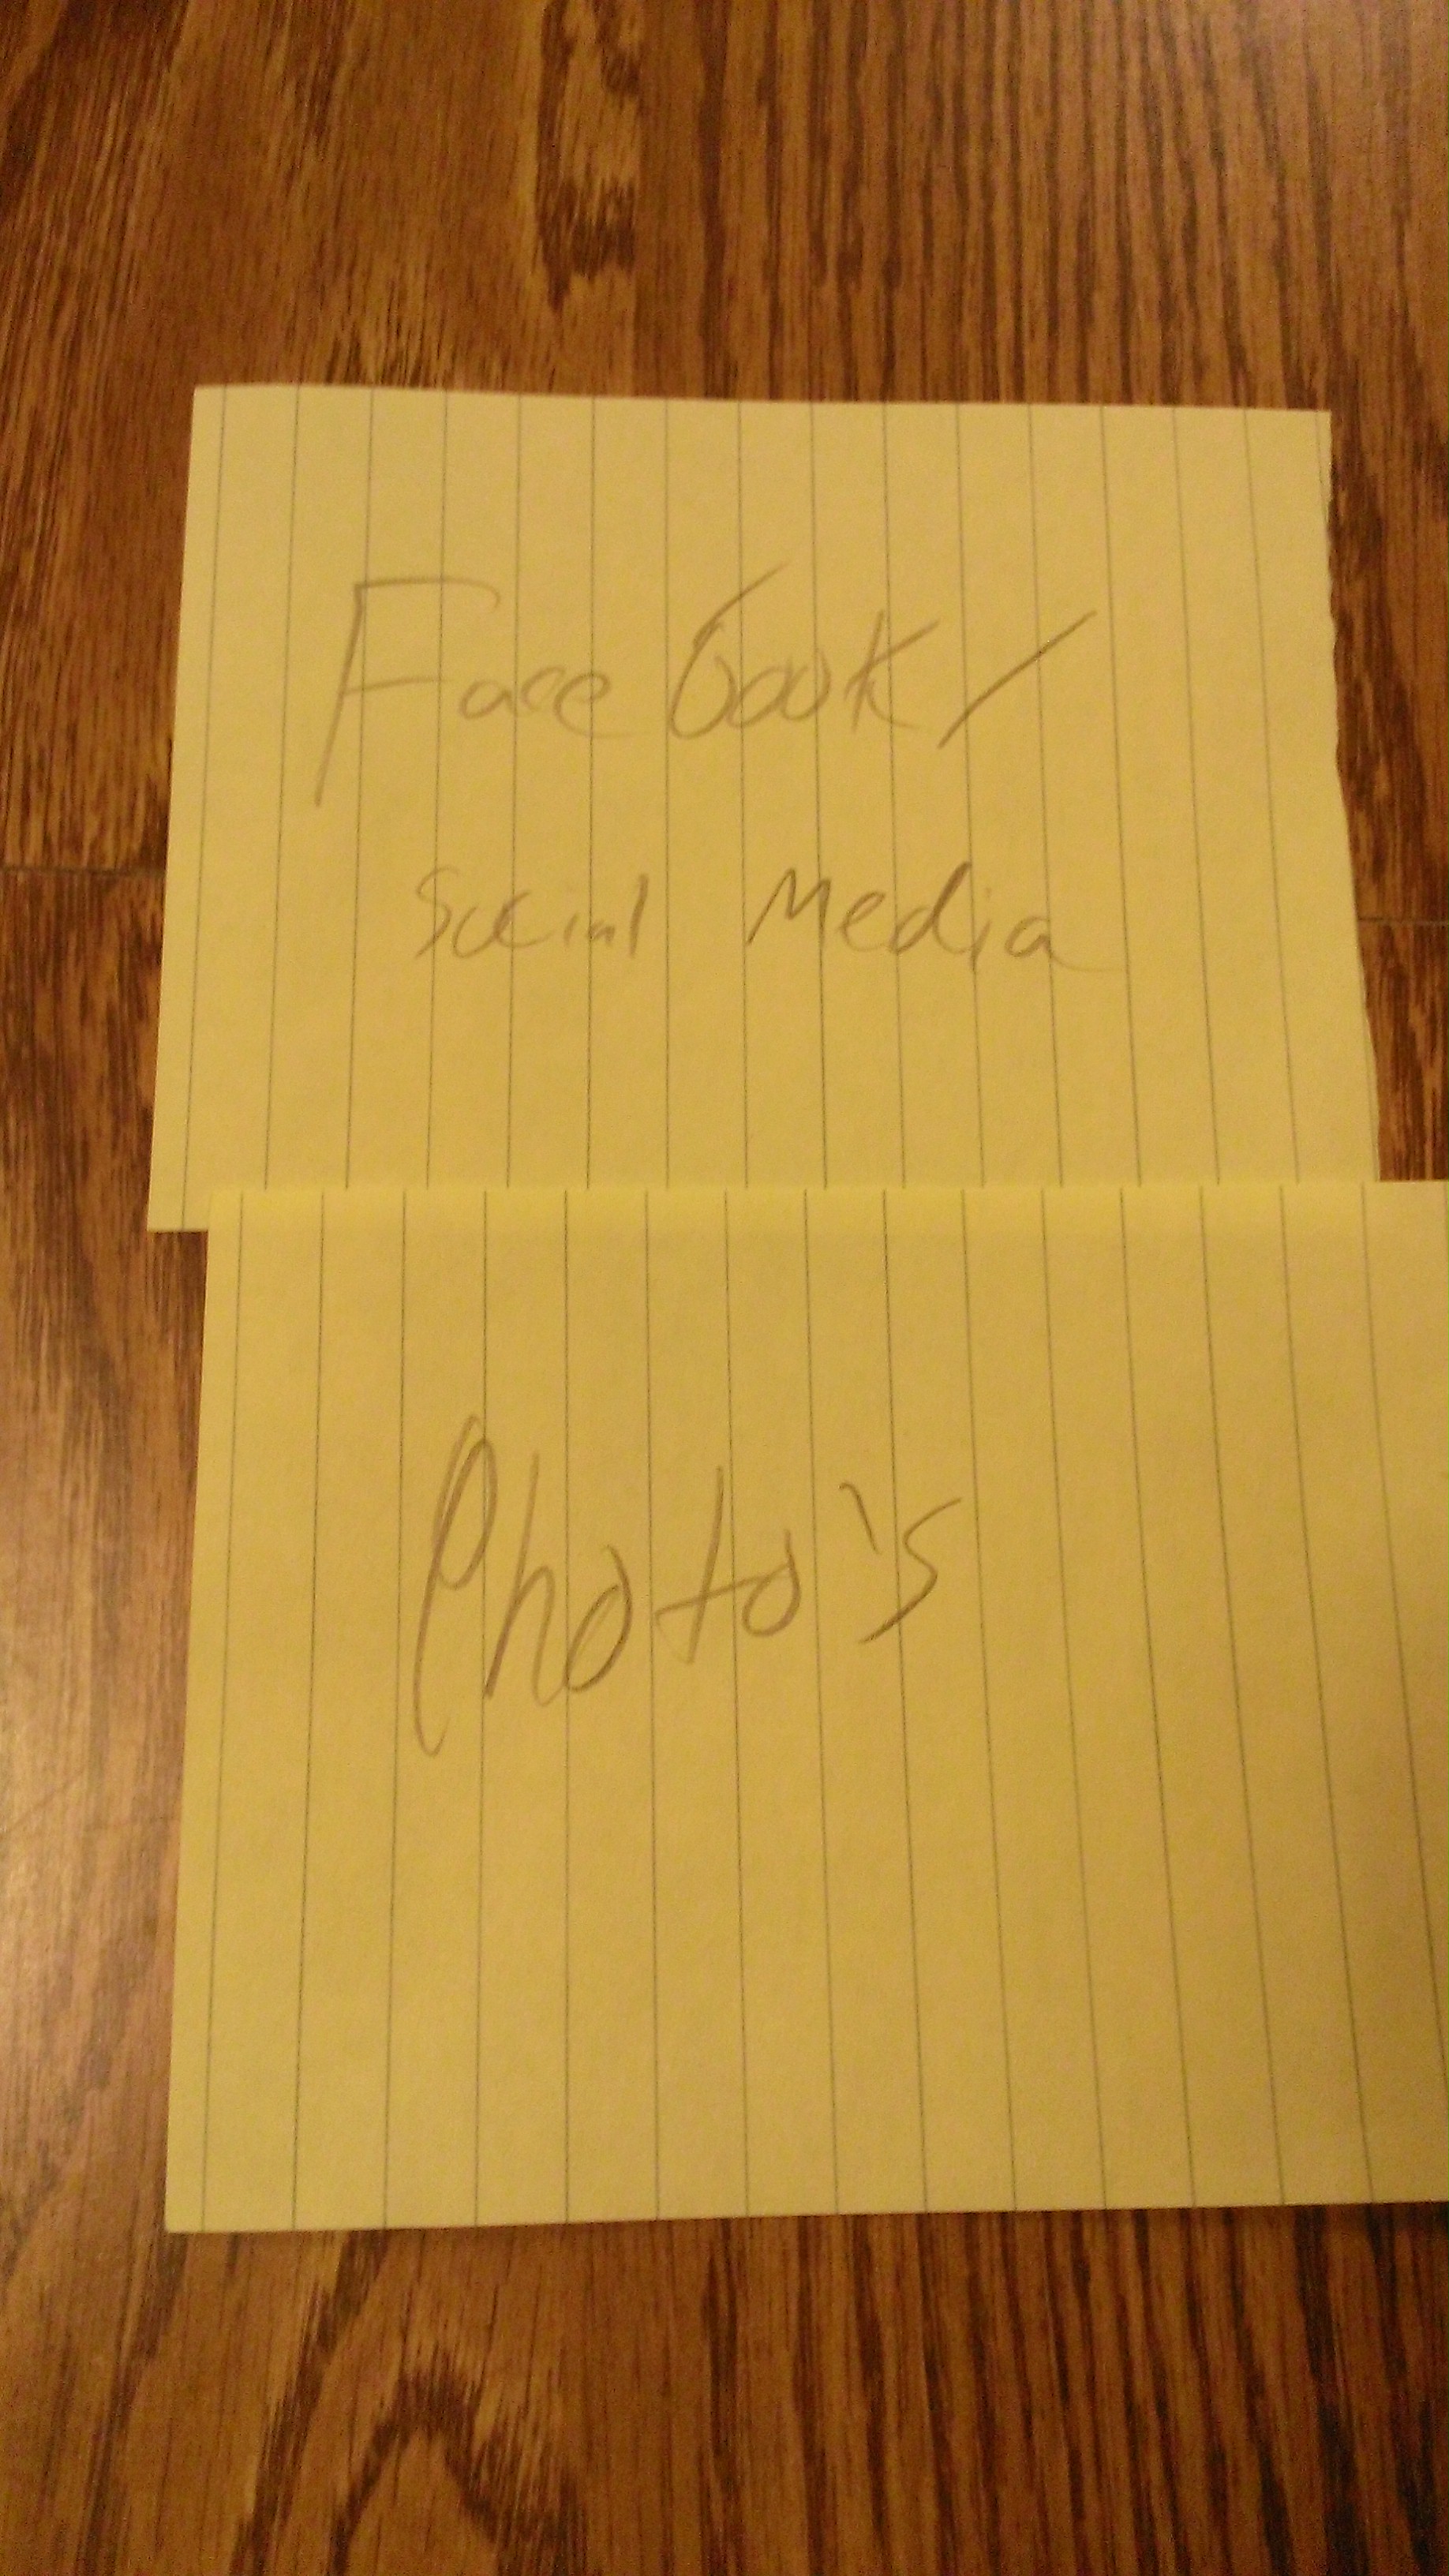 Facebook/
Social Media
Photo's